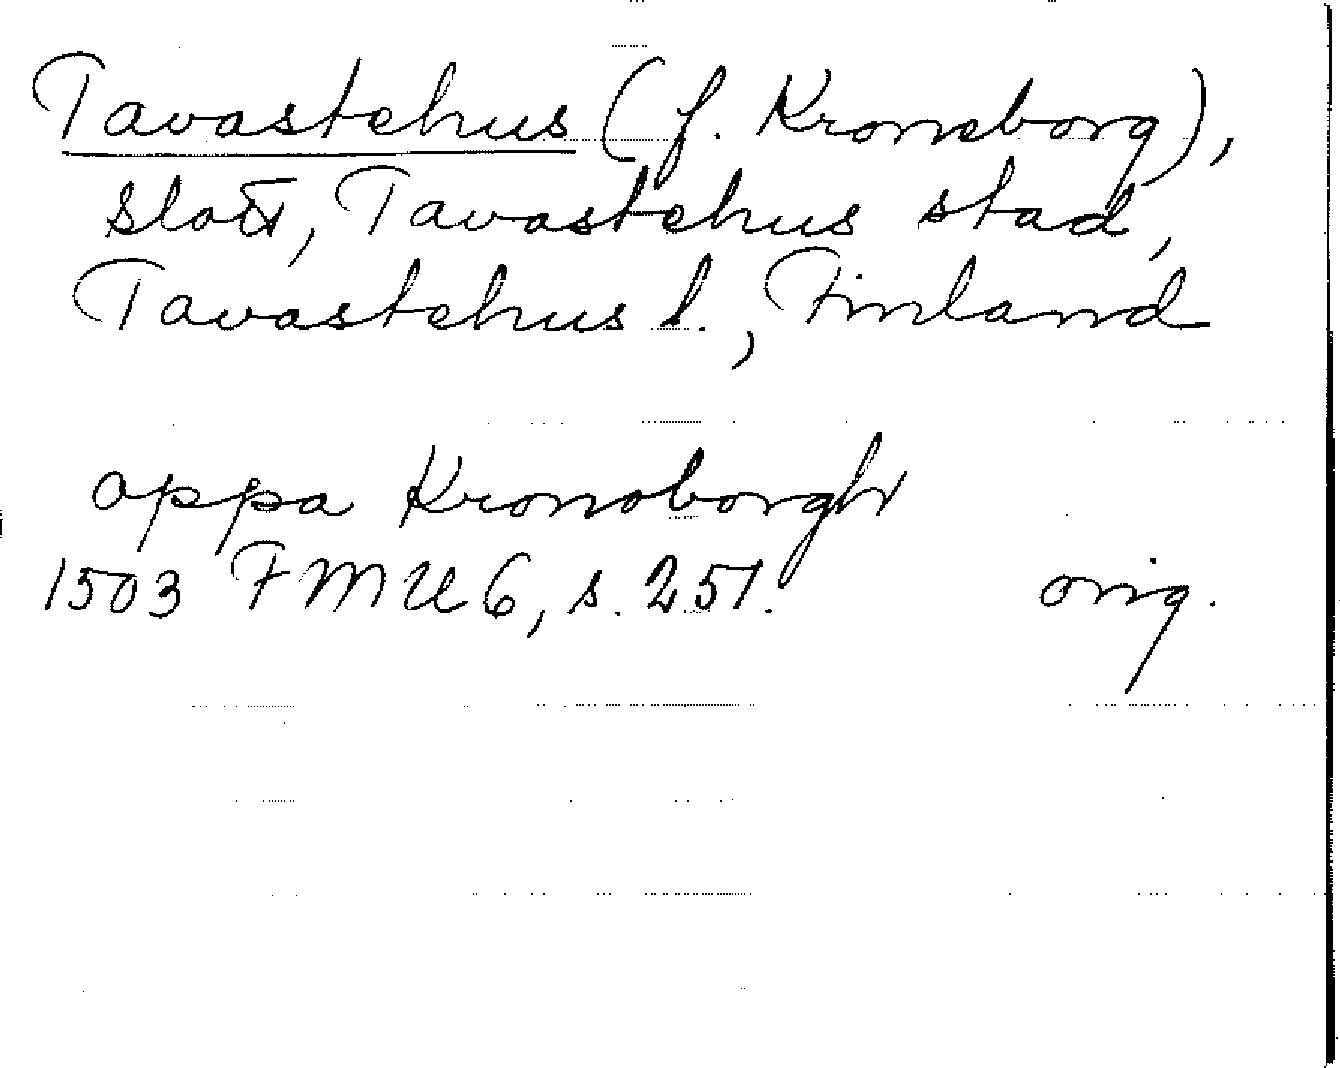 Tavastehus (f. Kroneborg),
slott, Tavastehus stad,
Tavastehus l., Finland
oppa Kronoborgh
1503 FMU 6, s. 251. orig.